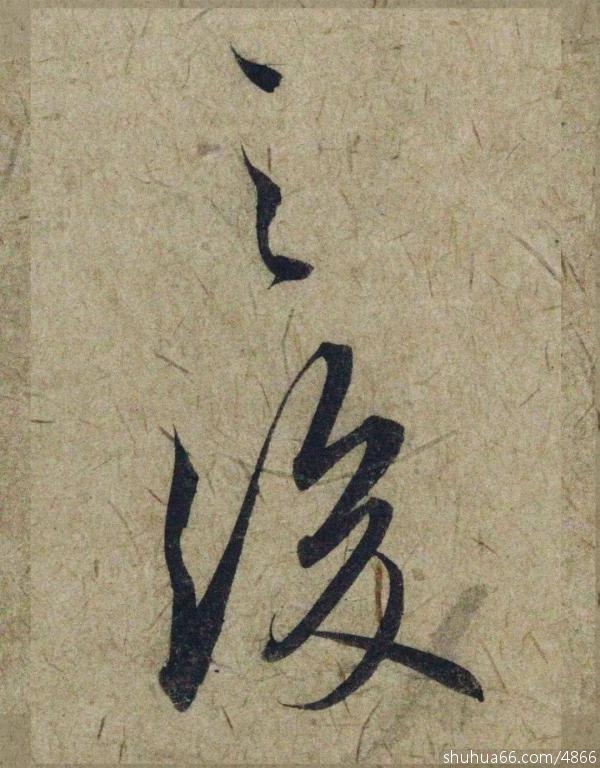 之
後
shuhua66.com/4866